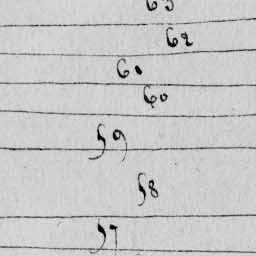 63
62
60
60
59
58
57